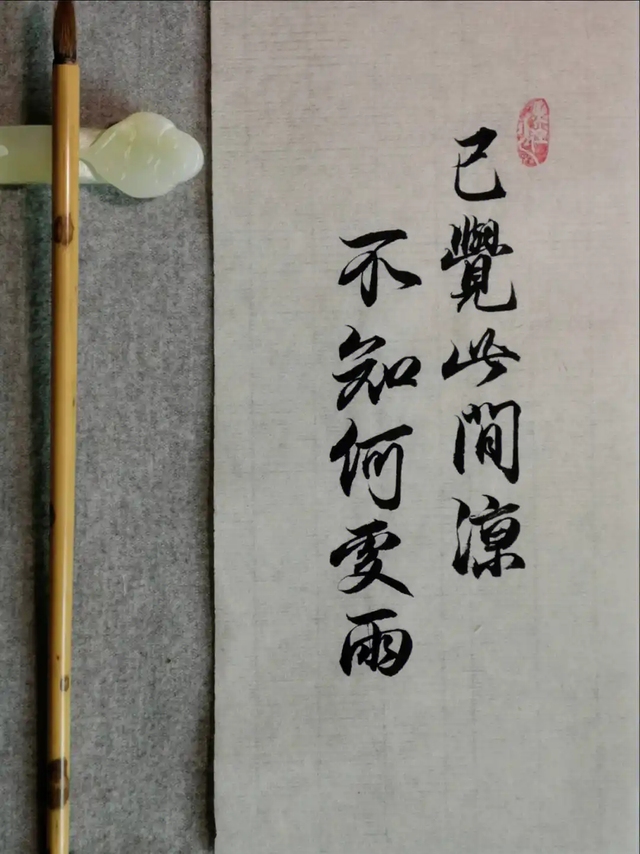 已覺此間涼
不知何處雨